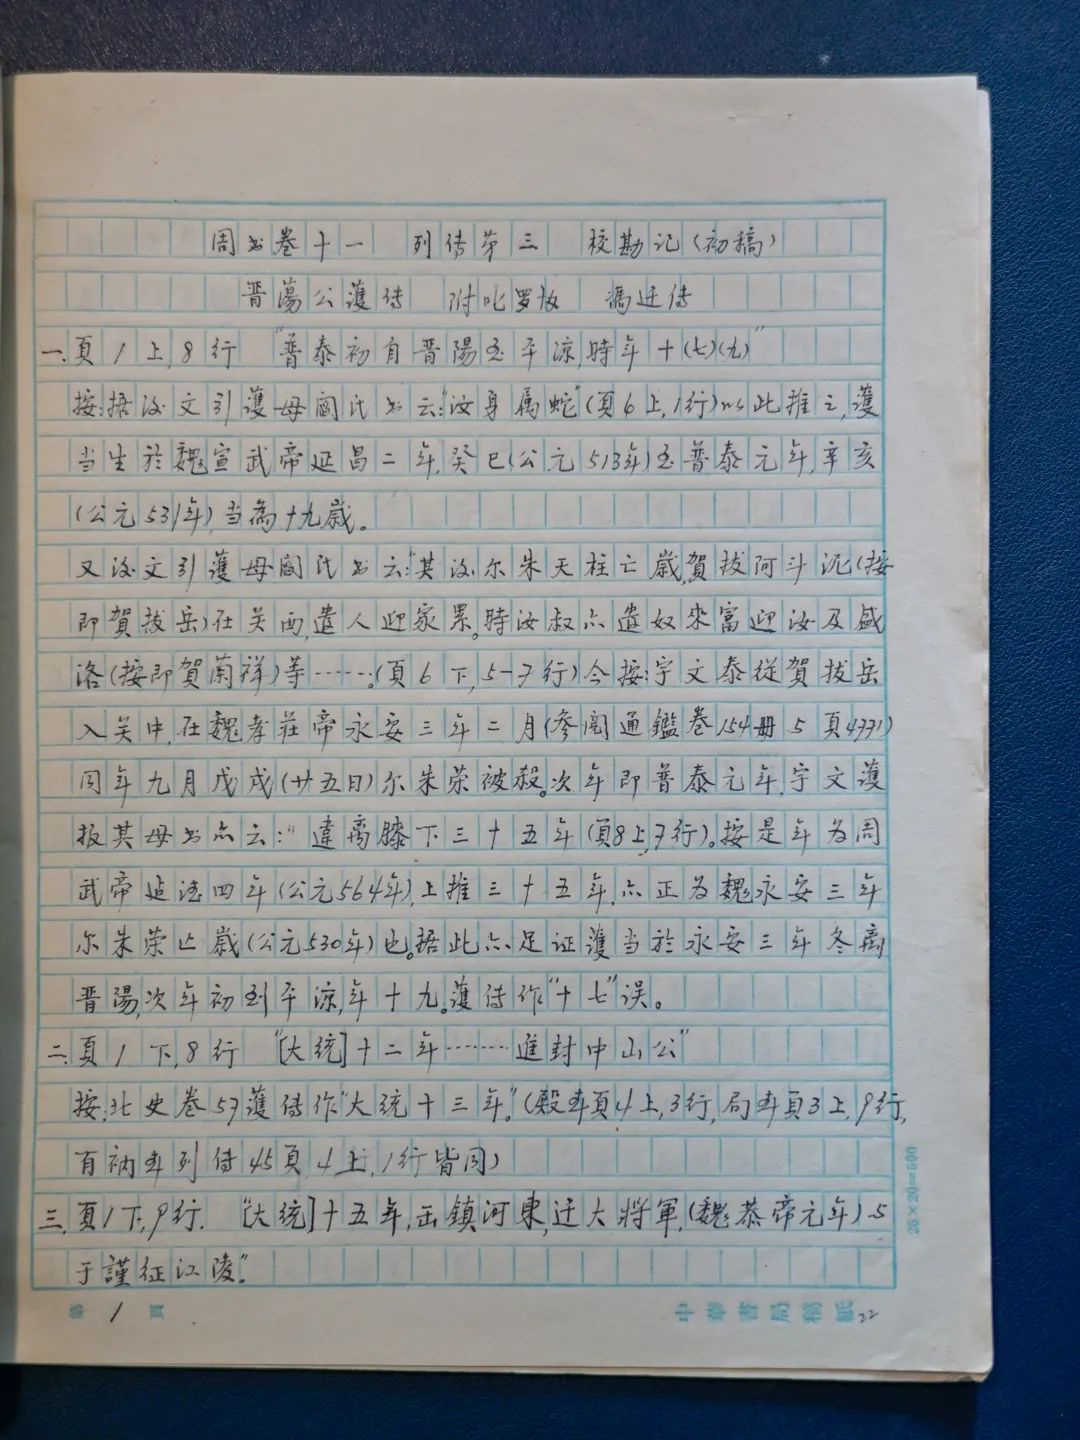 周书卷十一 列传第三 校勘记（初稿）
晋荡公護传 附叱罗协 馮迁传
一、頁1上,8行 "普泰初自晋陽至平涼,時年十(七)(九)"
按:据後文引護母閻氏书云:"汝身属蛇"(頁6上,1行)以此推之,護
当生於魏宣武帝延昌二年,癸巳(公元513年)至普泰元年,辛亥
(公元531年),当為十九歲。
又後文引護母閻氏书云:"其後尔朱天柱亡歲,賀拔阿斗泥(按
即賀拔岳)在关西,遣人迎家累。時汝叔亦遣奴來富迎汝及盛
洛(按即賀蘭祥)等……。(頁6下,5-7行)今按:宇文泰從賀拔岳
入关中,在魏孝莊帝永安三年二月(参阅通鑑卷154册5頁4771)
同年九月戊戌(廿五日)尔朱荣被殺。次年即普泰元年,宇文護
报其母书亦云:"違离膝下三十五年(頁8上,7行)。按是年为周
武帝延德四年(公元564年),上推三十五年,亦正为魏永安三年
尔朱荣亡歲(公元530年)也。据此亦足证護当於永安三年冬离
晋陽,次年初到平涼,年十九。護传作"十七"误。
二、頁1下,8行 "[大统]十二年……進封中山公"
按:北史卷57護传作"大统十三年。"(殿本頁4上,3行,局本頁3上,9行,
百衲本列传45頁4上,1行皆同)
三、頁1下,9行. "[大统]十五年,出鎮河東,迁大将軍,(魏恭帝元年)与
于謹征江陵。"
第1頁
中華書局稿紙
22
25×20=500